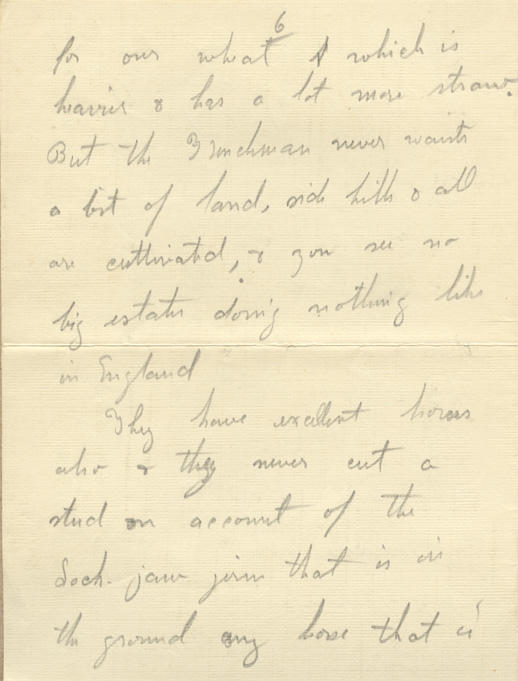 6
for our wheat & which is
heavier & has a lot more straw.
But the Frenchman never wastes
a bit of land, side hills & all
are cultivated, & you see no
big estates doing nothing like
in England
They have excellent horses
also & they never cut a
stud on account of the
Lock-jaw jerm that is in
the ground any horse that is